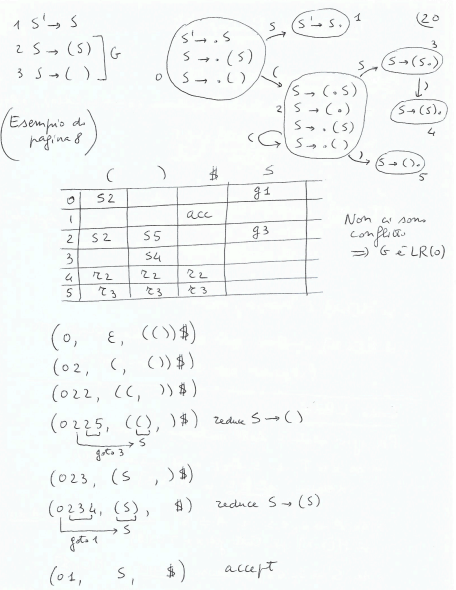 (20
1 S' → S
2 S → (S)
3 S → ( )
G
(Esempio di pagina 8)
0
S' → . S
S → . (S)
S → . ( )
S
S' → S .
1
(
2
S → ( . S)
S → ( . )
S → . (S)
S → . ( )
(
S
S → (S . )
3
)
S → (S) .
4
)
S → ( ) .
5
( ) $ S
0 S2 g1
1 acc
2 S2 S5 g3
3 S4
4 r2 r2 r2
5 r3 r3 r3
Non ci sono
conflitti
⇒ G è LR(0)
(0, ε, (())$)
(02, (, ())$)
(022, ((, ))$)
(0225, ((), )$) reduce S → ()
goto 3 S
(023, (S , )$)
(0234, (S), $) reduce S → (S)
goto 1 S
(01, S, $) accept